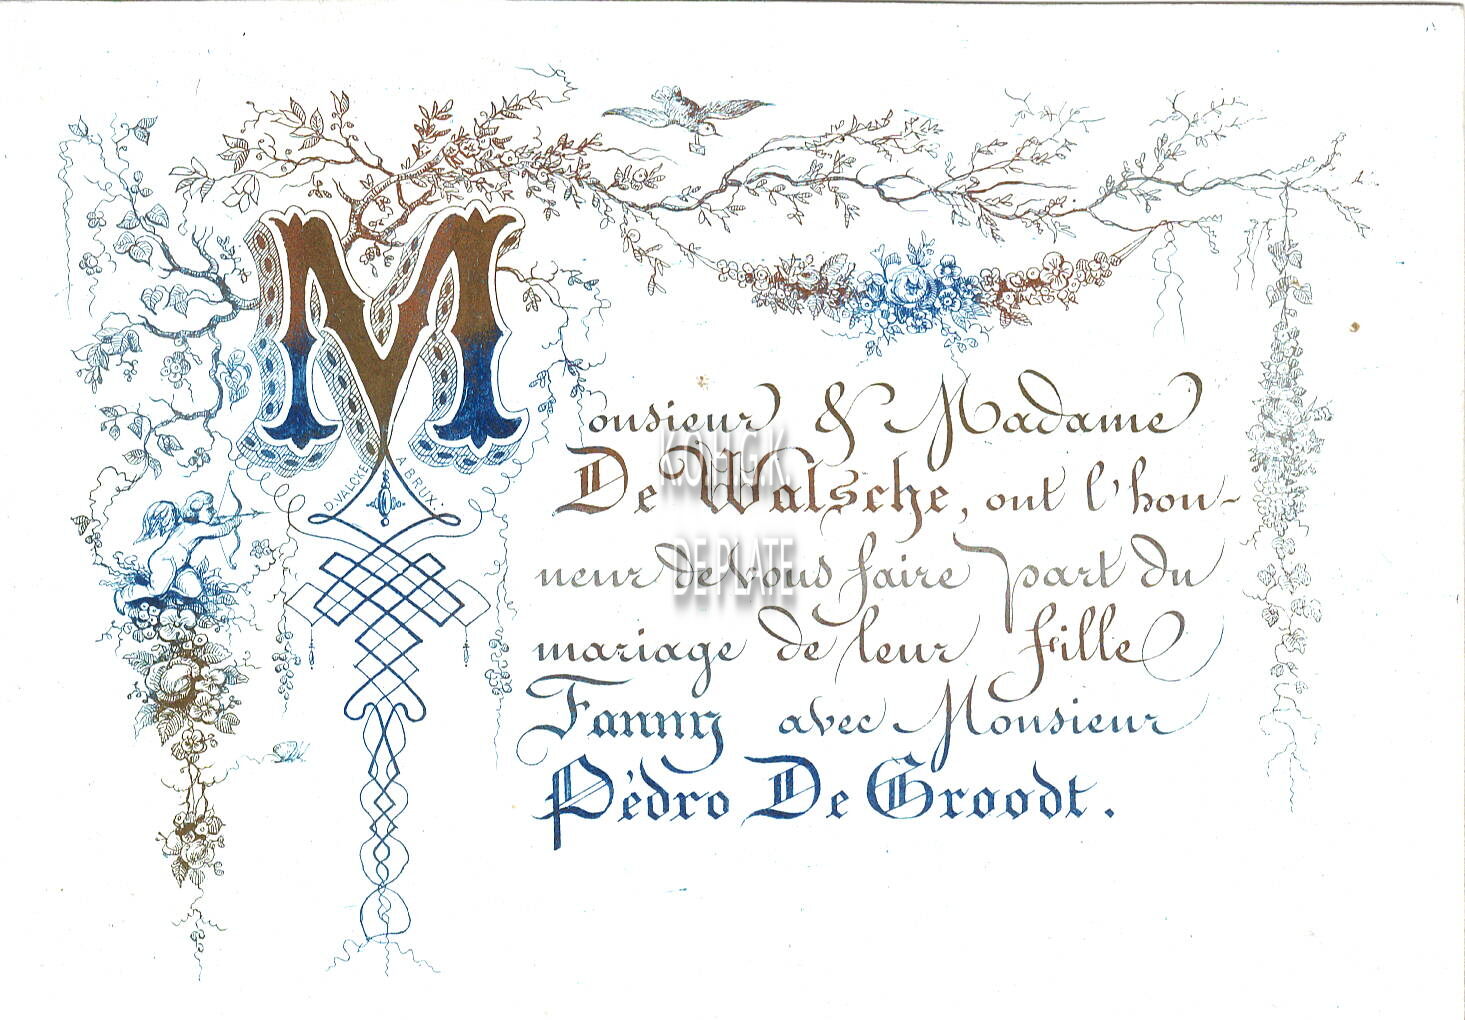 Monsieur & Madame
De Walsche, ont l'hon-
neur de vous faire part du
mariage de leur fille
Fanny avec Monsieur
Pédro De Groodt.
D. VALCKE A BRUX.
KOH.G.K.
DE PLATE